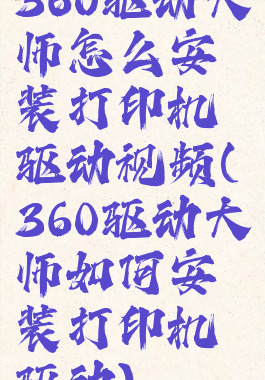 360驱动大
师怎么安
装打印机
驱动视频(
360驱动大
师如何安
装打印机
驱动)